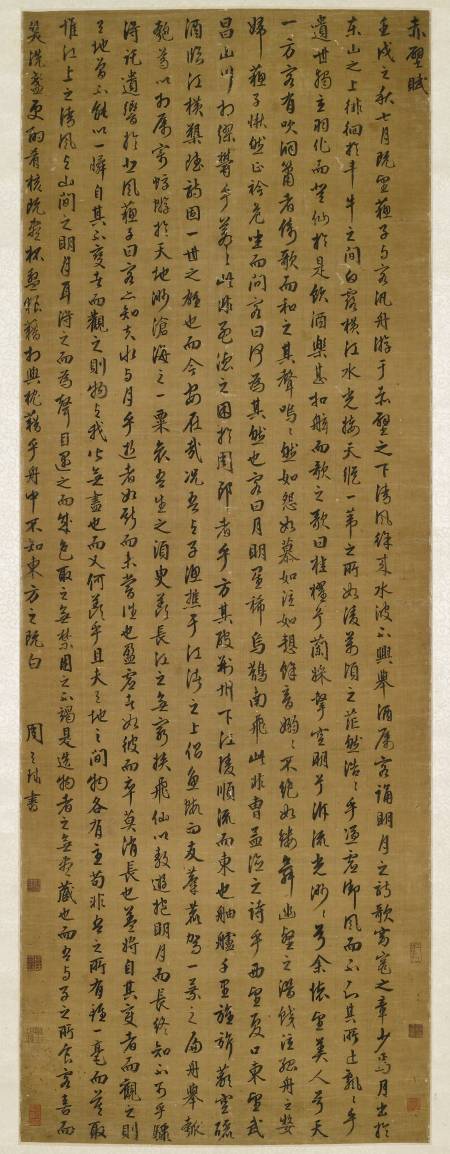 赤壁賦
壬戌之秋七月既望蘇子與客汎舟游于赤壁之下清風徐來水波不興舉酒屬客誦明月之詩歌窈窕之章少焉月出於
東山之上徘徊於斗牛之間白露橫江水光接天縱一葦之所如凌萬頃之茫然浩浩乎馮虛御風而不知其所止飄飄乎
遺世獨立羽化而登仙於是飲酒樂甚扣舷而歌之歌曰桂櫂兮蘭槳擊空明兮泝流光渺渺兮余懷望美人兮天
一方客有吹洞簫者倚歌而和之其聲嗚嗚然如怨如慕如泣如訴餘音嫋嫋不絕如縷舞幽壑之潛蛟泣孤舟之嫠
婦蘇子愀然正衿危坐而問客曰何為其然也客曰月明星稀烏鵲南飛此非曹孟德之詩乎西望夏口東望武
昌山川相繆鬱乎蒼蒼此非孟德之困於周郎者乎方其破荊州下江陵順流而東也舳艫千里旌旂蔽空釃
酒臨江橫槊賦詩固一世之雄也而今安在哉況吾與子漁樵于江渚之上侶魚蝦而友麋鹿駕一葉之扁舟舉匏
樽以相屬寄蜉蝣於天地渺滄海之一粟哀吾生之須臾羨長江之無窮挾飛仙以遨遊抱明月而長終知不可乎驟
得託遺響於悲風蘇子曰客亦知夫水與月乎逝者如斯而未嘗往也盈虛者如彼而卒莫消長也蓋將自其變者而觀之則
天地曾不能以一瞬自其不變者而觀之則物與我皆無盡也而又何羨乎且夫天地之間物各有主苟非吾之所有雖一毫而莫取
惟江上之清風與山間之明月耳得之而為聲目遇之而成色取之無禁用之不竭是造物者之無盡藏也而吾與子之所食客喜而
笑洗盞更酌肴核既盡杯盤狼藉相與枕藉乎舟中不知東方之既白 周天球書